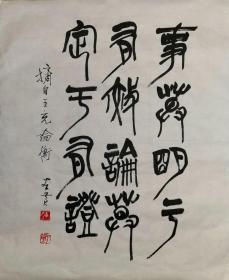 事莫明于
有效論莫
定于有證
摘自王充論衡